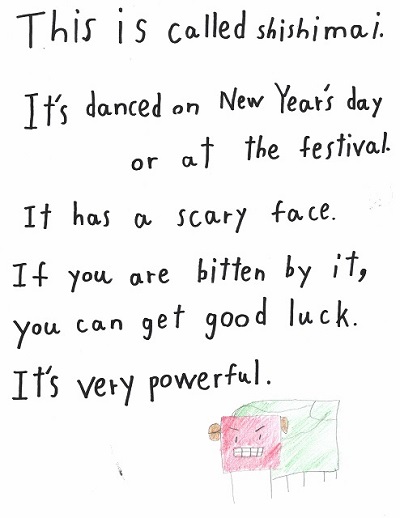 This is called shishimai.
It's danced on New Year's day
or at the festival.
It has a scary face.
If you are bitten by it,
you can get good luck.
It's very powerful.